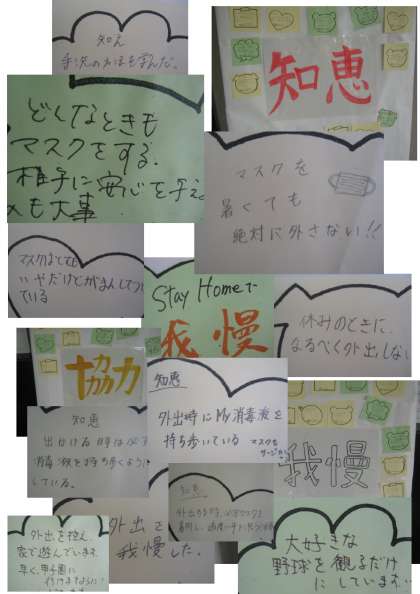 知え
知恵
どんなときも
マスクをする。
相手に安心を与え
も大事
マスクを
暑くても
絶対に外さない!!
いやだけどがまんしてつけ
ている
Stay Homeで
我慢
休みのときに
なるべく外出しな
協力
知恵
外出時にMy消毒液を
持ち歩いている
マスクも
知恵
出かける時は必ず
消毒液を持ち歩くように
している。
我慢
知恵
外出を
我慢した。
外出を控え、
家で遊んでいます。
早く、甲子園に
大好きな
野球を観るだけ
にしています